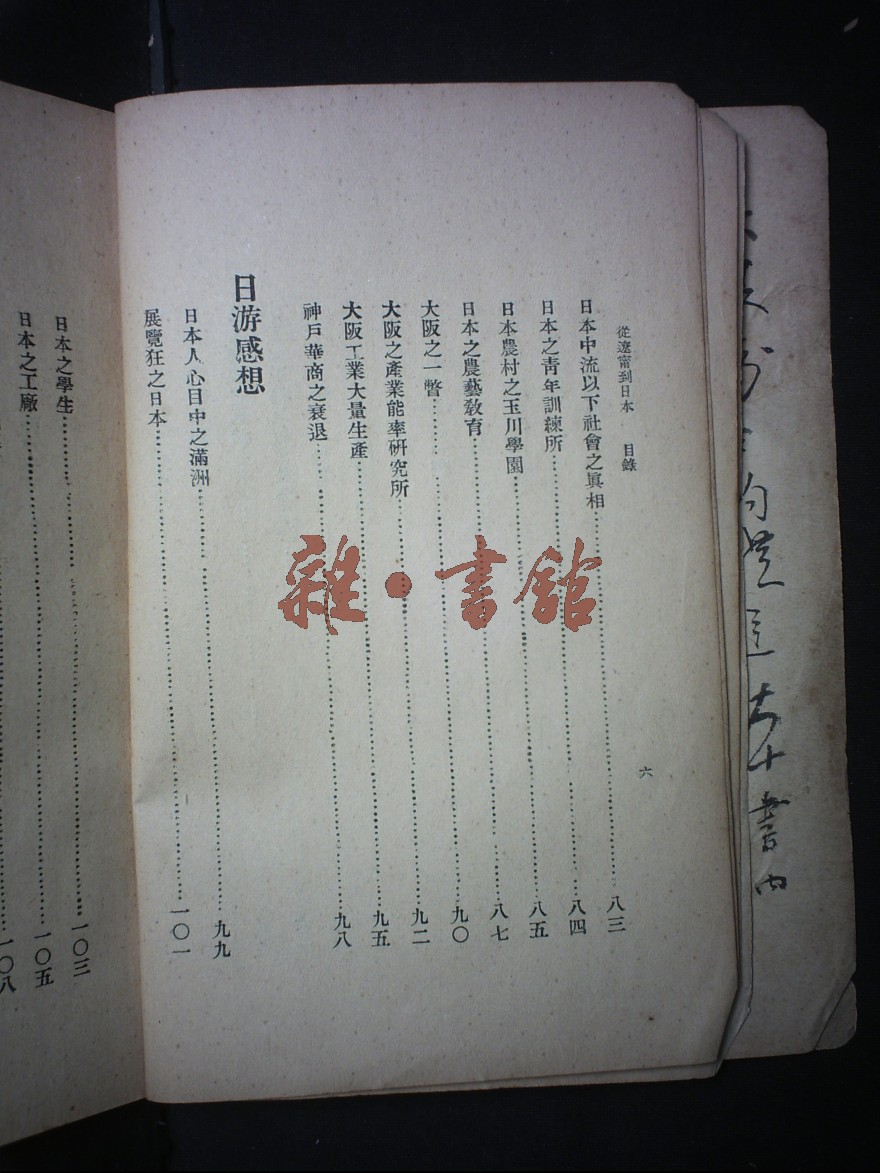 從遼甯到日本　目錄
六
日本中流以下社會之眞相……八三
日本之靑年訓練所……八四
日本農村之玉川學園……八五
日本之農藝敎育……八七
大阪之一瞥……九〇
大阪之產業能率硏究所……九二
大阪工業大量生產……九五
神戶華商之衰退……九八
日游感想
日本人心目中之滿洲……九九
展覽狂之日本……一〇一
日本之學生……一〇三
日本之工廠……一〇五
一〇八
雜·書館
書內